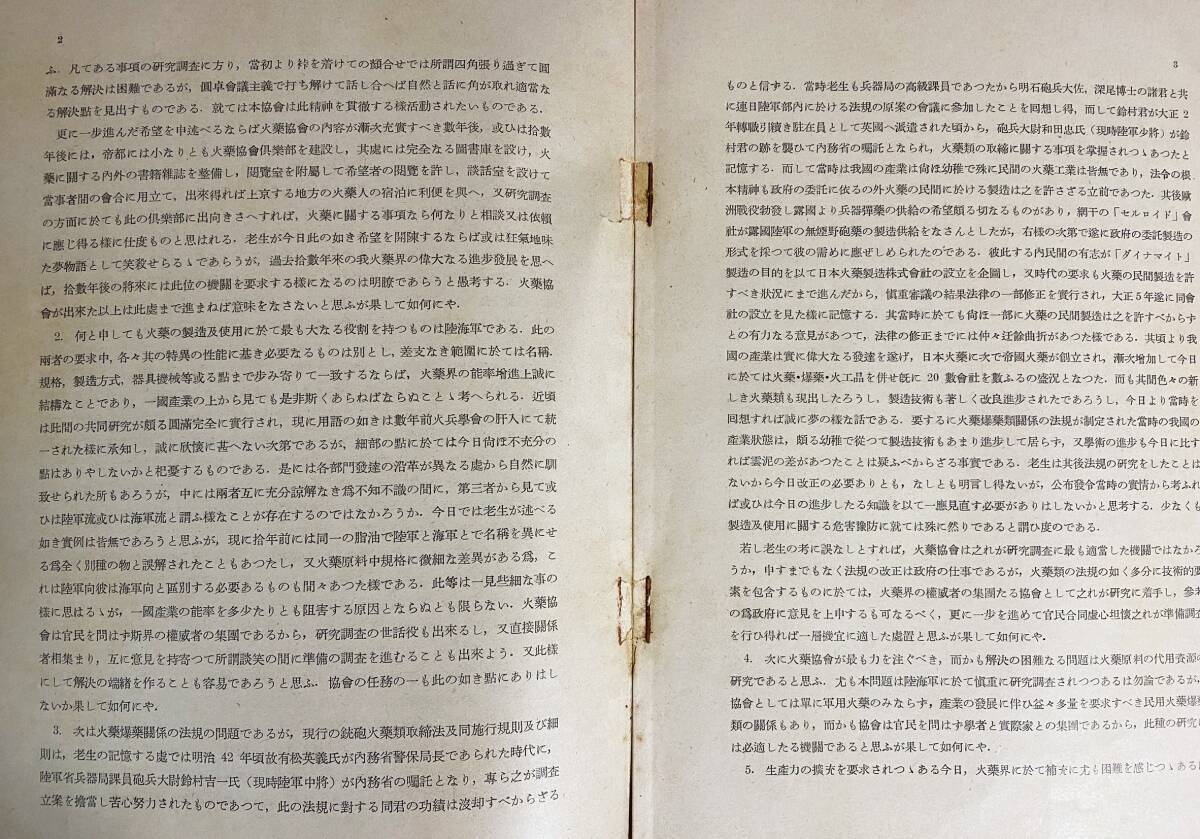 2
ふ．凡てある事項の研究調査に方り，當初より裃を着けての顏合せでは所謂四角張り過ぎて圓
滿なる解決は困難であるが，圓卓會議主義で打ち解けて話し合へば自然と話に角が取れ適當な
る解決點を見出すものである．就ては本協會は此精神を貫徹する樣活動されたいものである．
更に一步進んだ希望を申述べるならば火藥協會の內容が漸次充實すべき數年後，或ひは拾數
年後には，帝都には小なりとも火藥協會倶樂部を建設し，其處には完全なる圖書庫を設け，火
藥に關する內外の書籍雜誌を整備し，閱覽室を附屬して希望者の閱覽を許し，談話室を設けて
當事者間の會合に用立て，出來得れば上京する地方の火藥人の宿泊に利便を與へ，又研究調査
の方面に於ても此の倶樂部に出向きさへすれば，火藥に關する事項なら何なりと相談又は依賴
に應じ得る樣に仕度ものと思はれる．老生が今日此の如き希望を開陳するならば或は狂氣地味
た夢物語として笑殺せらるゝであらうが，過去拾數年來の我火藥界の偉大なる進步發展を思へ
ば，拾數年後の將來には此位の機關を要求する樣になるのは明瞭であらうと愚考する．火藥協
會が出來た以上は此處まで進まねば意味をなさないと思ふが果して如何にや．
2. 何と申しても火藥の製造及使用に於て最も大なる役割を持つものは陸海軍である．此の
兩者の要求中，各々其の特異の性能に基き必要なるものは別とし，差支なき範圍に於ては名稱．
規格，製造方式，器具機械等或る點まで步み寄りて一致するならば，火藥界の能率增進上誠に
結構なことであり，一國產業の上から見ても是非斯くあらねばならぬことゝ考へられる．近頃
は此間の共同研究が頗る圓滿完全に實行され，現に用語の如きは數年前火兵學會の肝入にて統
一された樣に承知し，誠に欣懷に甚へない次第であるが，細部の點に於ては今日尙ほ不充分の
點はありやしないかと祀憂するものである．是には各部門發達の沿革が異なる處から自然に馴
致せられた所もあろうが，中には兩者互に充分諒解なき爲不知不識の間に，第三者から見て或
ひは陸軍流或ひは海軍流と謂ふ樣なことが存在するのではなかろうか．今日では老生が述べる
如き實例は皆無であろうと思ふが，現に拾年前には同一の脂油で陸軍と海軍とで名稱を異にせ
る爲全く別種の物と誤解されたこともあつたし，又火藥原料中規格に微細な差異がある爲，こ
れは陸軍向彼は海軍向と區別する必要あるものも間々あつた樣である．此等は一見些細な事の
樣に思はるゝが，一國產業の能率を多少たりとも阻害する原因とならぬとも限らない．火藥協
會は官民を問はず斯界の權威者の集團であるから，研究調査の世話役も出來るし，又直接關係
者相集まり，互に意見を持寄つて所謂談笑の間に準備の調査を進むることも出來よう．又此樣
にして解決の端緖を作ることも容易であろうと思ふ．協會の任務の一も此の如き點にありはし
ないか果して如何にや．
3. 次は火藥爆藥關係の法規の問題であるが，現行の銃砲火藥類取締法及同施行規則及び細
則は，老生の記憶する處では明治 42 年頃故有松英義氏が內務省警保局長であられた時代に，
陸軍省兵器局課員砲兵大尉鈴村吉一氏（現時陸軍中將）が內務省の囑託となり，專ら之が調査
立案を擔當し苦心努力されたものであつて，此の法規に對する同君の功績は沒却すべからざる
3
ものと信ずる．當時老生も兵器局の高級課員であつたから明石砲兵大佐，深尾博士の諸君と共
に連日陸軍部內に於ける法規の原案の會議に參加したことを囘想し得，而して鈴村君が大正 2
年轉職引續き駐在員として英國へ派遣された頃から，砲兵大尉和田忠氏（現時陸軍少將）が鈴
村君の跡を襲ひて內務省の囑託となられ，火藥類の取締に關する事項を掌握されつゝあつたと
記憶する．而して當時は我國の產業は尙ほ幼稚で殊に民間の火藥工業は皆無であり，法令の根
本精神も政府の委託に依るの外火藥の民間に於ける製造は之を許さざる立前であつた．其後歐
洲戰役勃發し露國より兵器彈藥の供給の希望頗る切なるものがあり，網干の「セルロイド」會
社が露國陸軍の無煙野砲藥の製造供給をなさんとしたが，右樣の次第で遂に政府の委託製造の
形式を採つて彼の需めに應ぜしめられたのである．彼此する內民間の有志が「ダイナマイト」
製造の目的を以て日本火藥製造株式會社の設立を企圖し，又時代の要求も火藥の民間製造を許
すべき狀況にまで進んだから，愼重審議の結果法律の一部修正を實行され，大正 5 年遂に同會
社の設立を見た樣に記憶する．其當時に於ても尙ほ一部に火藥の民間製造は之を許すべからず
との有力なる意見があつて，法律の修正までには仲々迂餘曲折があつた樣である．其頃より我
國の產業は實に偉大なる發達を遂げ，日本火藥に次で帝國火藥が創立され，漸次增加して今日
に於ては火藥・爆藥・火工品を併せ旣に 20 數會社を數ふるの盛況となつた．而も其間色々の新
しき火藥類も現出したろうし，製造技術も著しく改良進步されたであろうし，今日より當時を
囘想すれば誠に夢の樣な話である．要するに火藥爆藥類關係の法規が制定された當時の我國の
產業狀態は，頗る幼稚で從つて製造技術もあまり進步して居らず，又學術の進步も今日に比す
れば雲泥の差があつたことは疑ふべからざる事實である．老生は其後法規の研究をしたことは
ないから今日改正の必要ありとも，なしとも明言し得ないが，公布發令當時の實情から考ふれ
ば或ひは今日の進步したる知識を以て一應見直す必要がありはしないかと思考する．少なくも
製造及使用に關する危害豫防に就ては殊に然りであると謂ひ度のである．
若し老生の考に誤なしとすれば，火藥協會は之れが硏究調査に最も適當した機關ではなかろ
うか，申すまでもなく法規の改正は政府の仕事であるが，火藥類の法規の如く多分に技術的要
素を包含するものに於ては，火藥界の權威者の集團たる協會として之れが研究に着手し，參考
の爲政府に意見を上申するも可なるべく，更に一步を進めて官民合同虛心坦懷之れが準備調査
を行ひ得れば一層機宜に適した處置と思ふが果して如何にや．
4. 次に火藥協會が最も力を注ぐべき，而かも解決の困難なる問題は火藥原料の代用資源の
研究であると思ふ．尤も本問題は陸海軍に於て愼重に研究調査されつつあるは勿論であるが，
協會としては單に軍用火藥のみならず，產業の發展に伴ひ益々多量を要求すべき民用火藥爆藥
類の關係もあり，而かも協會は官民を問はず學者と實際家との集團であるから，此種の研究に
は必適したる機關であると思ふが果して如何にや．
5. 生產力の擴充を要求されつゝある今日，火藥界に於て補充に尤も困難を感じつゝある